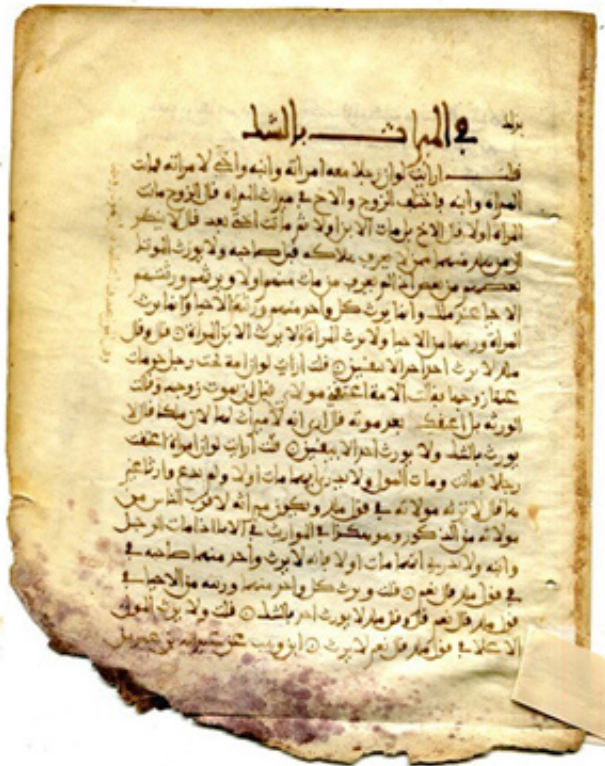 في الميراث بالشك
قلت ارايت لو ان رجلا معه امراته وابنه واخو لامراته فمات
المراة وابنه فاختلف الزوج والاخ في ميراث المراة قال الزوج ماتت
المراة اولا قال الاخ بل مات الابن اولا ثم ماتت اختي بعد قال لا ينظر
الى من هلك منهما ممن لا يعرف هلاكه قبل صاحبه ولا يورث الموتى
بعضهم من بعض اذا لم يعرف من مات منهم اولا ويرثهم ورثتهم
الاحيا عند ملك وانما يورث كل واحد منهم ورثته الاحيا وانما يرث
المراة ورثتها من الاحيا ولا ترث المراة ولا يرث الابن المراة قال وقال
ملك لا يرث احد احدا الا بيقين قلت ارايت لو ان امة تحت رجل حر مات
عنها زوجها فقالت الامة اعتقني مولاي قبل ان يموت زوجي وقالت
الورثة بل اعتقك بعد موته قال ارى انه لا ميراث لها لان ملكا قال لا
يورث بالشك ولا يورث احد الا بيقين قلت ارايت لو ان امراة اعتقت
رجلا فماتت ومات المولى ولا يدرى ايهما مات اولا ولم يدع وارثا غير
ما قال لا ترثه مولاته في قول ملك ويكون ميراثه لاقرب الناس من
مولاته من الذكور وهو هكذا في الموارث في الابا اذا مات الرجل
وابنه ولا يدرى ايهما مات اولا فانه لا يرث واحد منهما صاحبه في
في قول ملك قال نعم قلت ويرث كل واحد منهما ورثته من الاحيا في
قول ملك قال نعم قال وقال ملك لا يورث احد بالشك قلت ولا يرث المولى
الاعلا في قول ملك قال نعم لا يرث ابن وهب عن